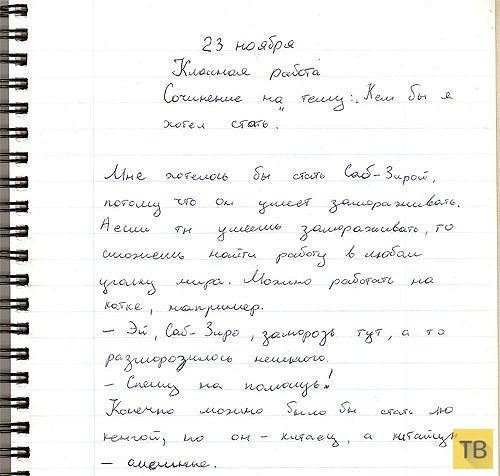 23 ноября
Класная работа
Сочинение на тему: „Кем бы я
хотел стать.
Мне хотелось бы стать Саб-Зирой,
потому что он умеет замораживать.
А если ты умеешь замораживать, то
сможешь найти работу в любом
уголку мира. Можно работать на
катке, например.
– Эй, Саб-Зиро, заморозь тут, а то
разморозилось немного.
– Спешу на помощь!
Конечно можно было бы стать лю
кенгой, но он – китаец, а китайцы
– смешные.
ТВ